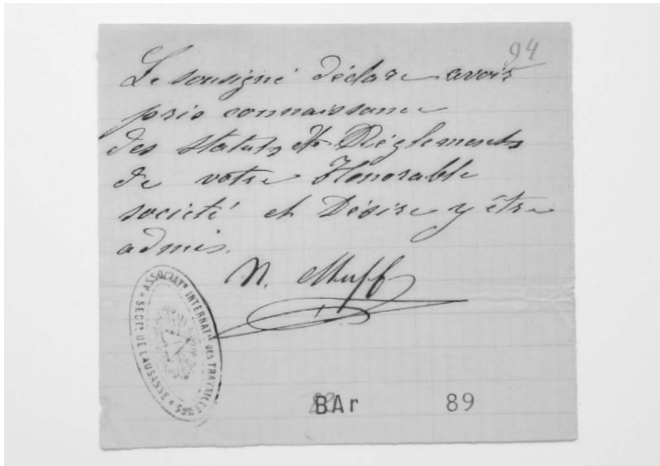 94
Le sousigné déclare avoir
pris connaissance
des Statuts & Règlements
de votre Honorable
société et Désire y être
admis.
N. Muff
ASSOCIATN INTERNATLE DES TRAVAILLEURS
SECTN DE LAUSANNE
BAr 89